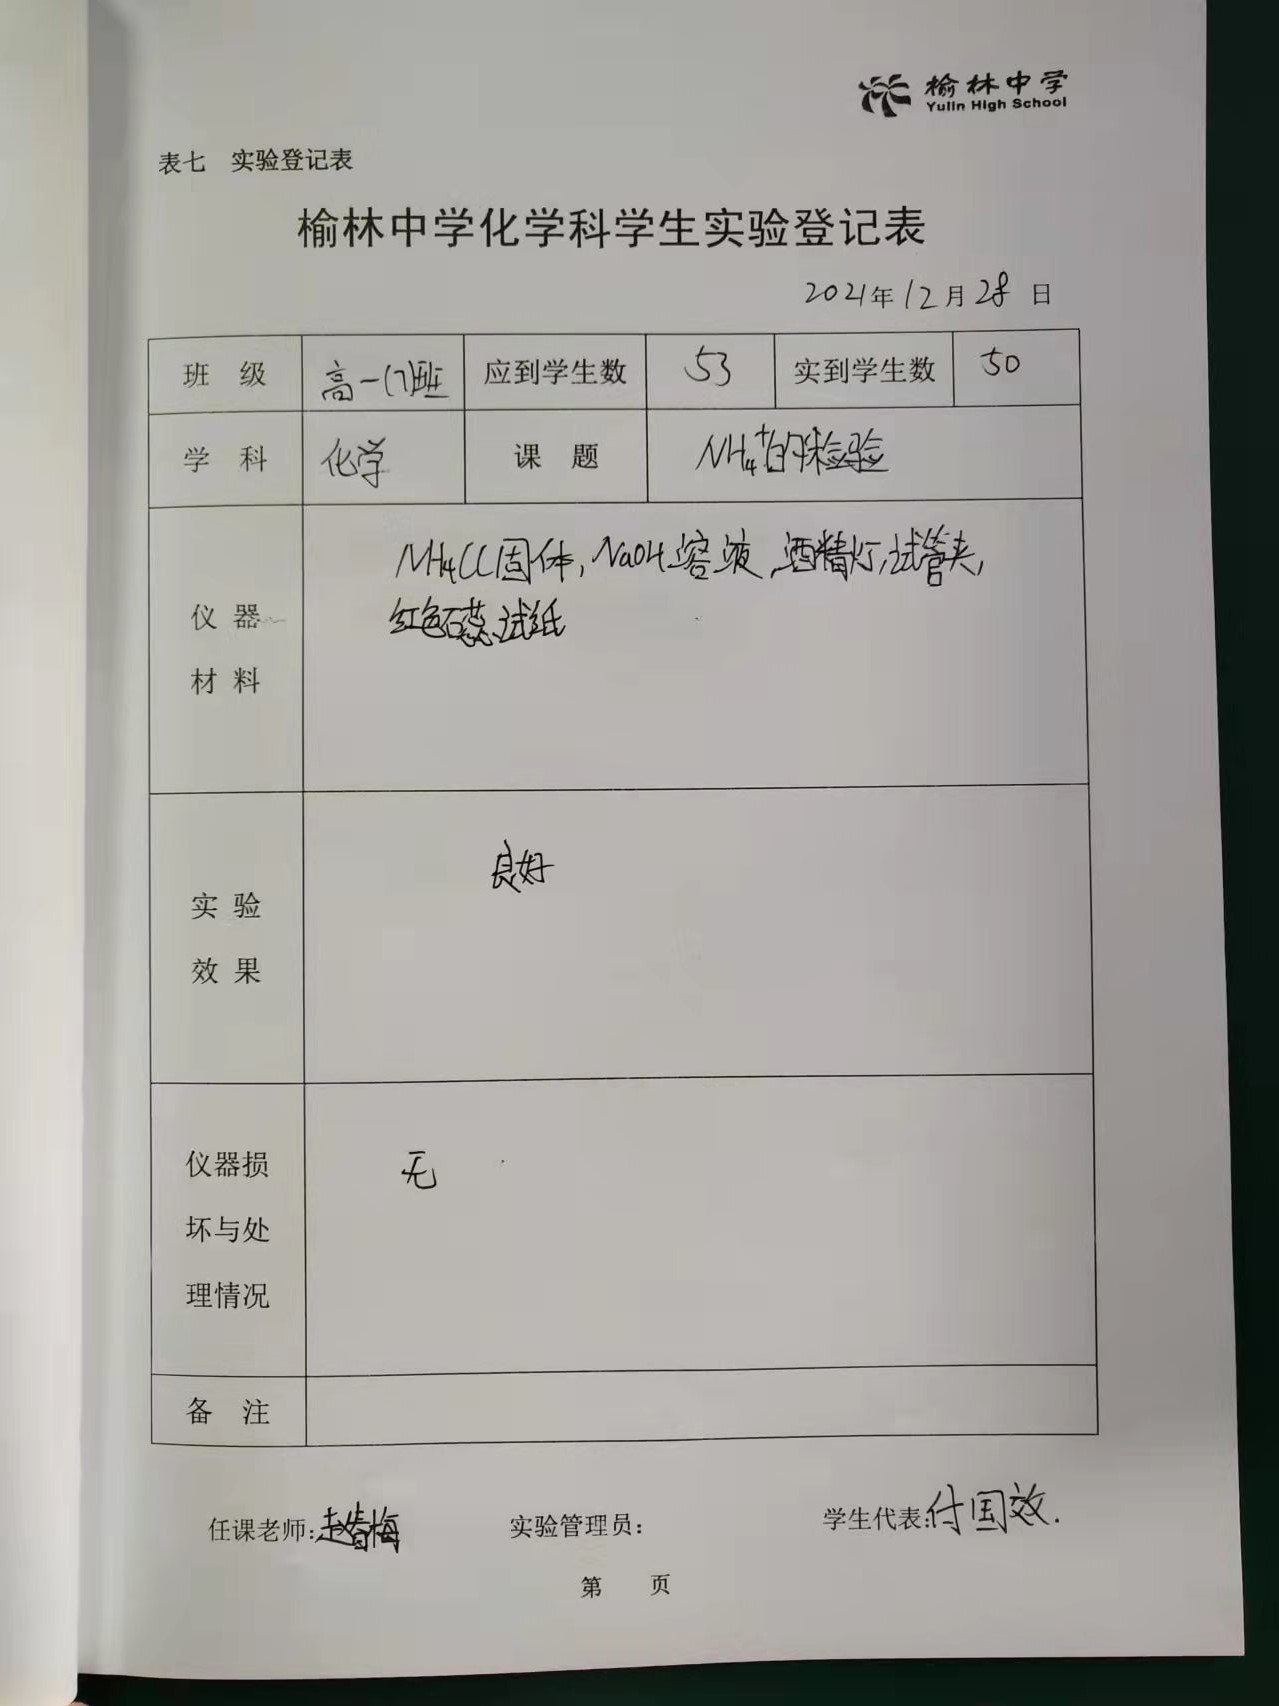 榆林中学
Yulin High School
表七 实验登记表
榆林中学化学科学生实验登记表
2021年12月28日
班 级 高一(7)班 应到学生数 53 实到学生数 50
学 科 化学 课 题 NH₄⁺的检验
仪 器
材 料
NH₄Cl固体,NaOH溶液,酒精灯,试管夹,
红色石蕊试纸
实 验
效 果
良好
仪器损
坏与处
理情况
无
备 注
任课老师:赵春梅 实验管理员: 学生代表:付国效.
第 页